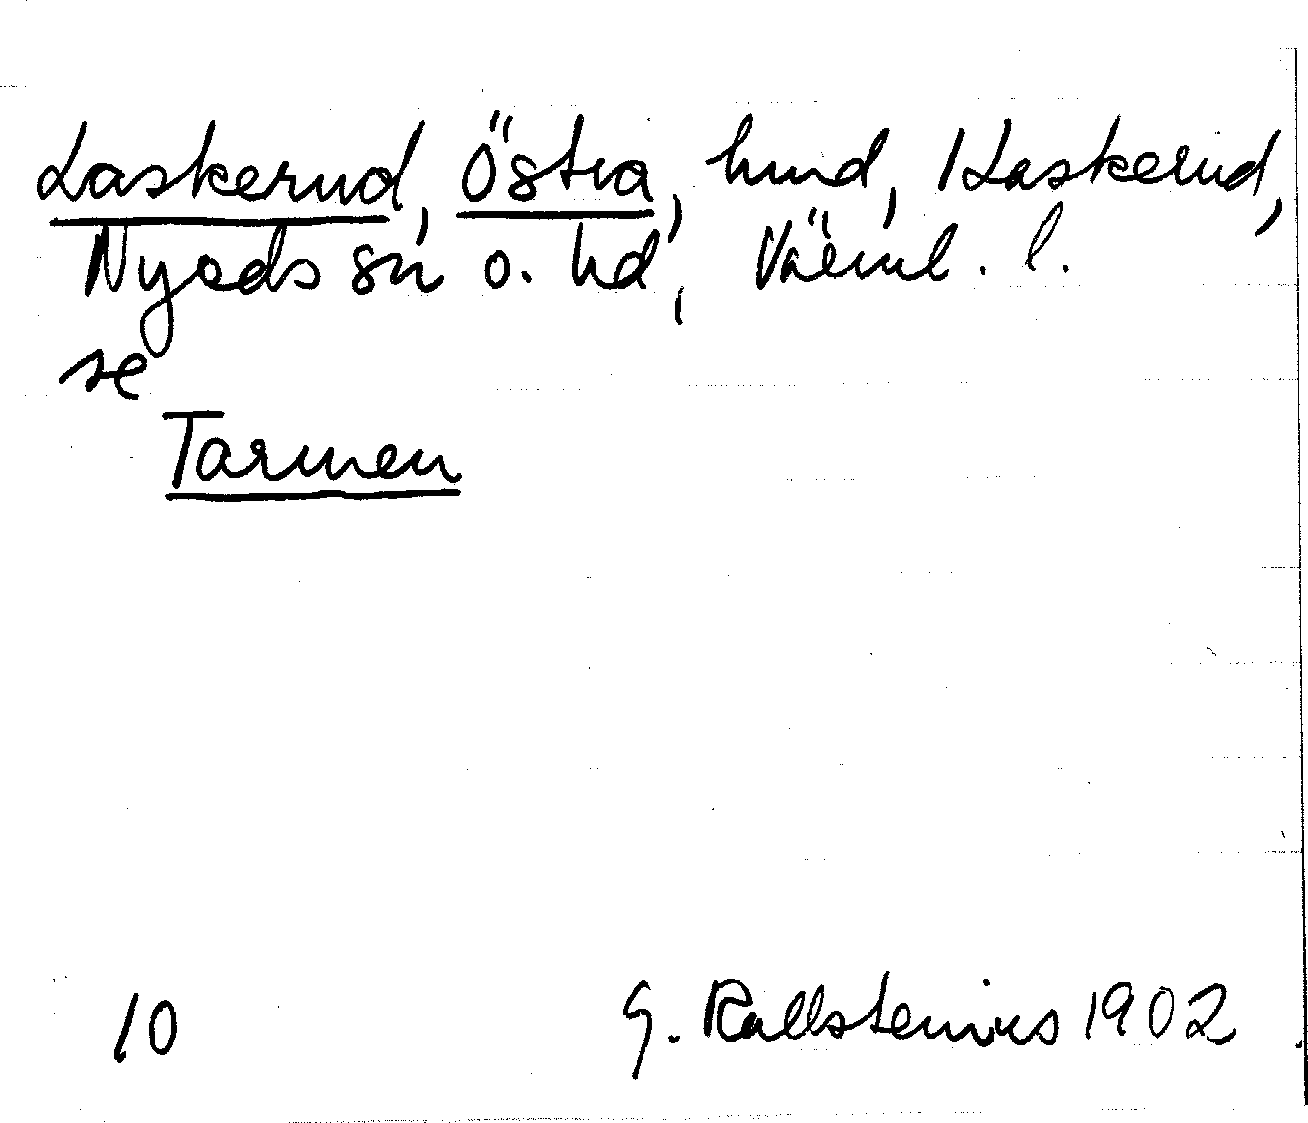 Laskerud, Östra, hmd, 1 Laskerud,
Nyeds sn o. hd, Värml. l.
se
Tarmen
10 G. Kallstenius 1902